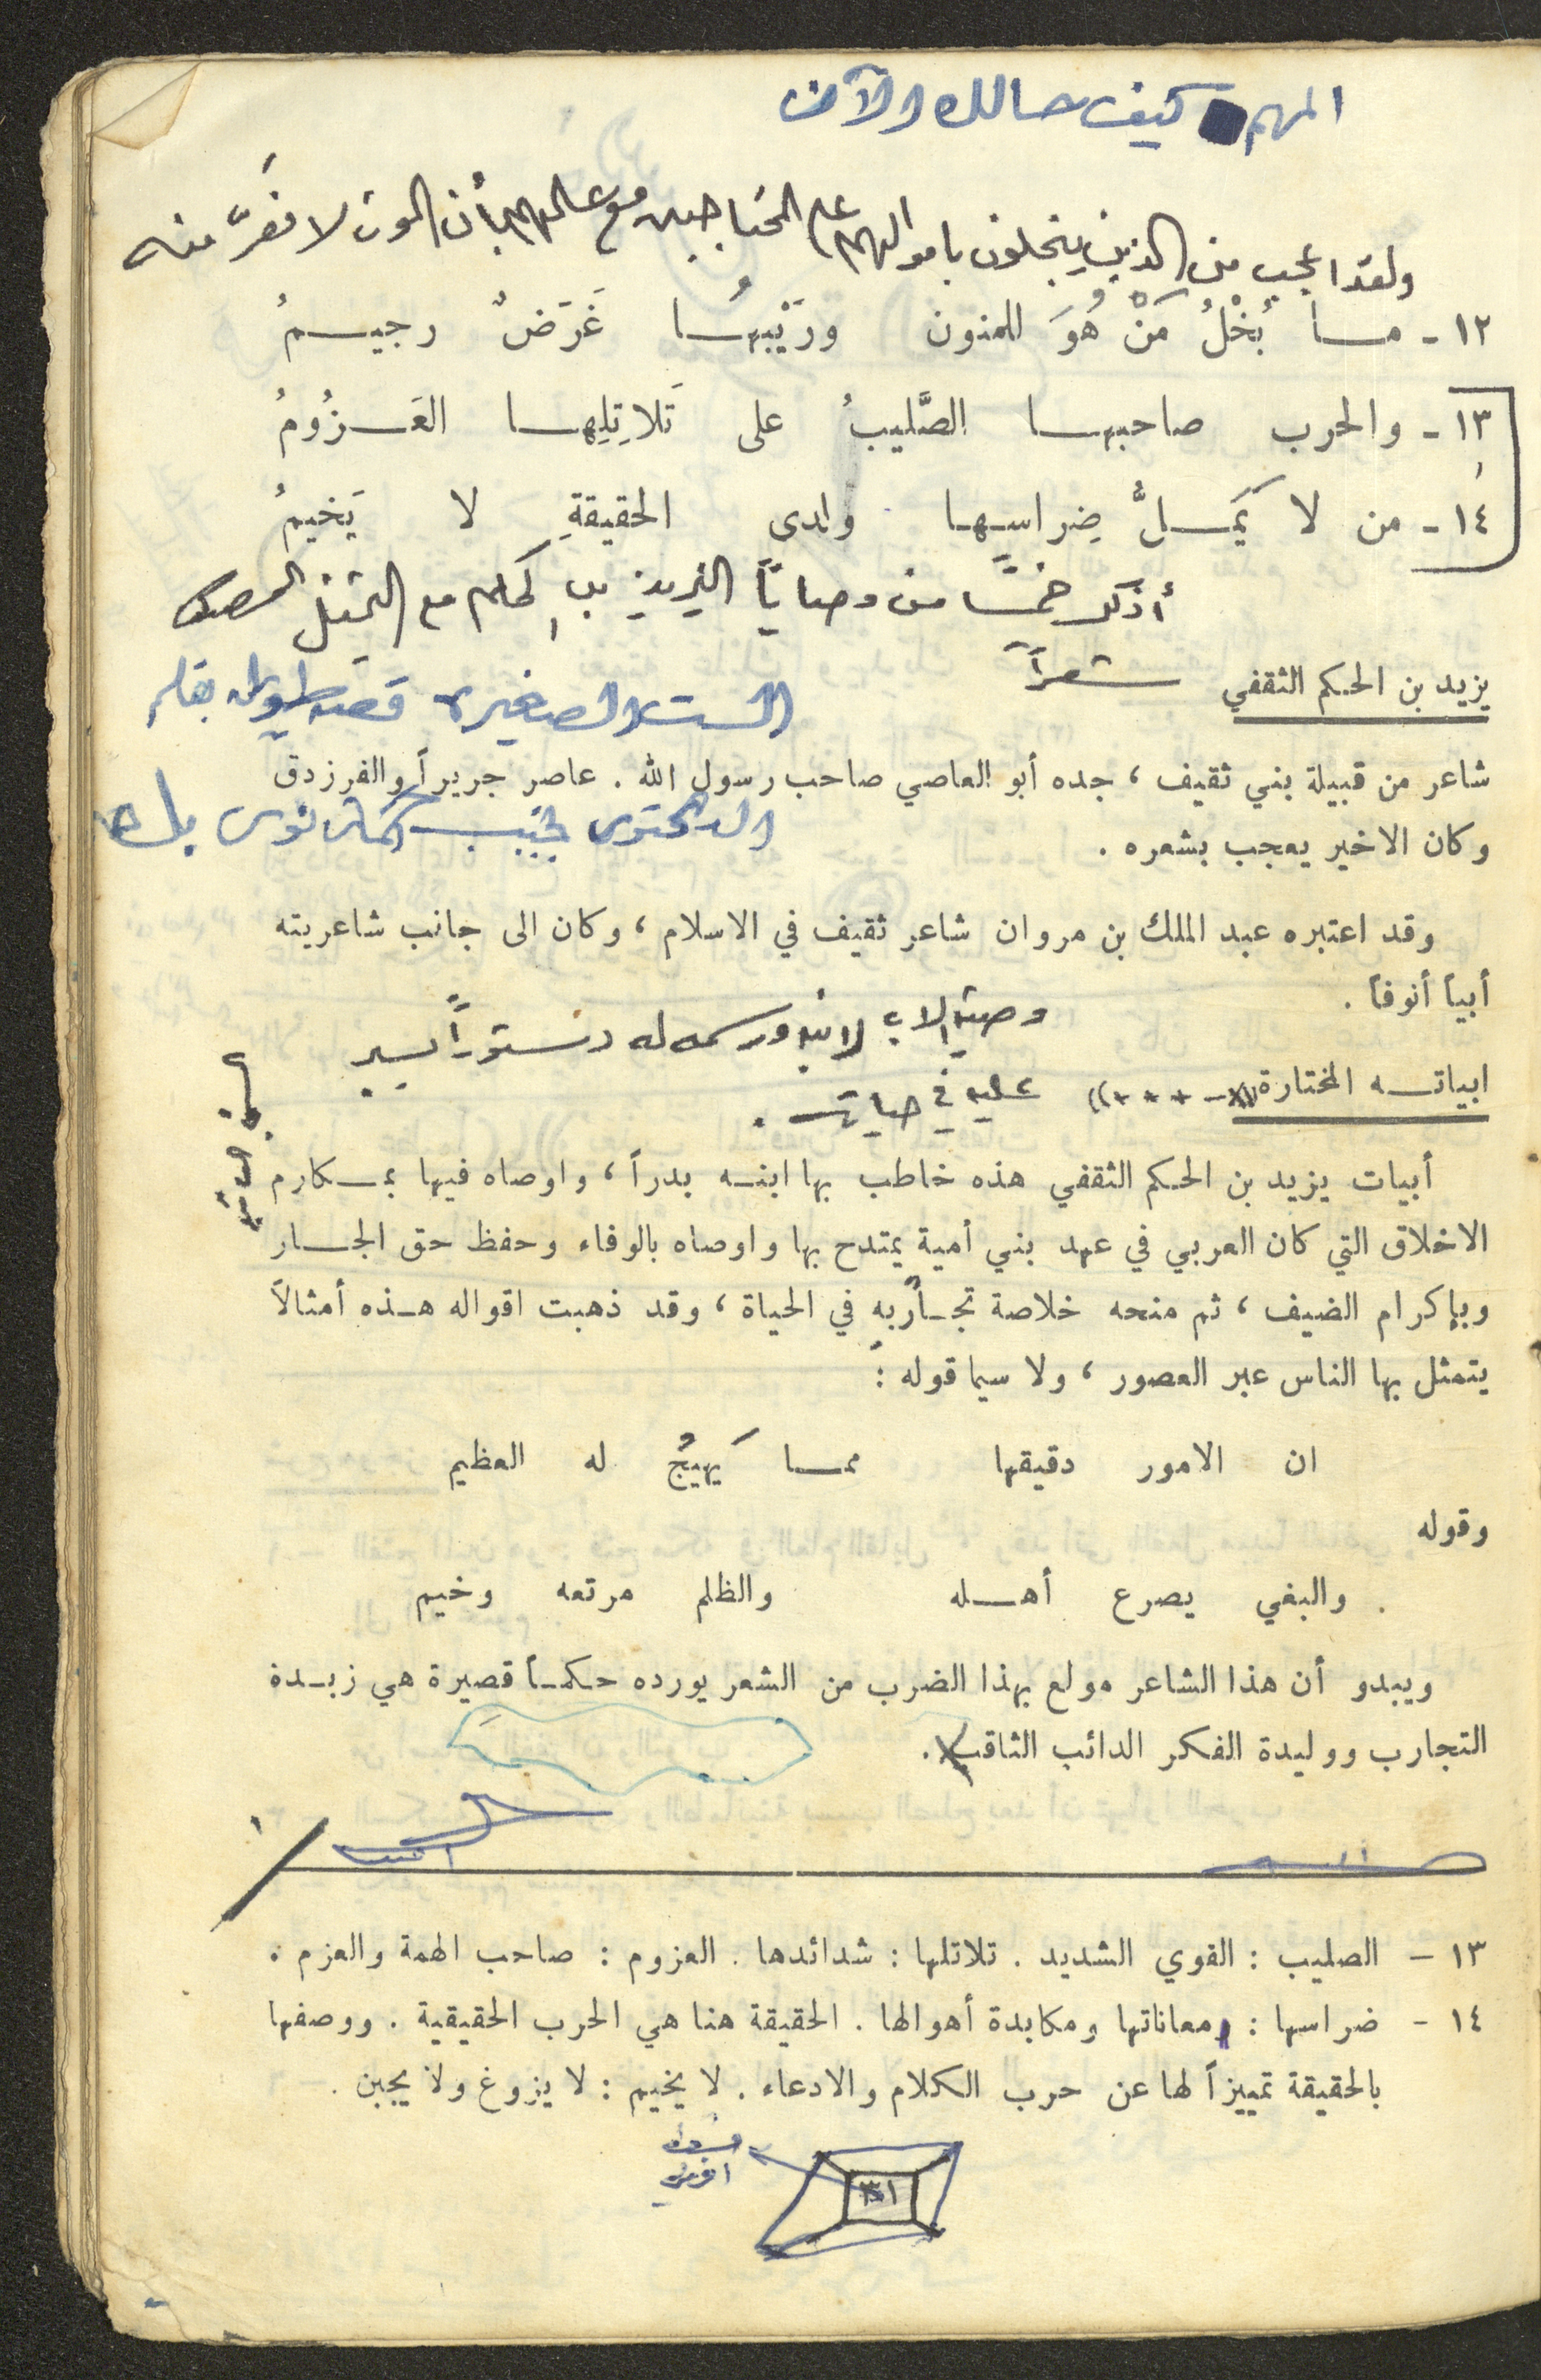 المهم كيف حالك الآن
ولقد اعجب من الذين يبخلون باموالهم على المحتاجين مع علمهم بأن الموت لا مفرّ منه
١٢ - مــا بُخْلُ مَنْ هُوَ للمنون ورَيْبِهــا غَرَضٌ رجيــمُ
١٣ - والحرب صاحبهــا الصَّليبُ على تَلاتِلِهــا العَــزُومُ
١٤ - من لا يَمَــلُّ ضِراسهــا ولدى الحقيقةِ لا يَخيمُ
أذكر خمساً من وصايا اليزيد بن الحكم مع التمثل
شعراً
يزيد بن الحكم الثقفي
الست الصغيرة قصة طويلة بقلم
شاعر من قبيلة بني ثقيف ، جده أبو العاصي صاحب رسول الله . عاصر جريراً والفرزدق
وكان الاخير يعجب بشعره .
وقد اعتبره عبد الملك بن مروان شاعر ثقيف في الاسلام ، وكان الى جانب شاعريته
أبياً أنوفاً .
وصية الاب لابنه ورسمه له دستوراً يسير
ابياتــه المختارة
عليه في حياته .
أبيات يزيد بن الحكم الثقفي هذه خاطب بها ابنــه بدراً ، واوصاه فيها بمــكارم
الاخلاق التي كان العربي في عهد بني أمية يمتدح بها واوصاه بالوفاء وحفظ حق الجــار
وبإكرام الضيف ، ثم منحه خلاصة تجــاربه في الحياة ، وقد ذهبت اقواله هــذه أمثالاً
يتمثل بها الناس عبر العصور ، ولا سيما قوله :
ان الامور دقيقها ممــا يَهيجُ له العظيم
وقوله
. والبغي يصرع أهــله والظلم مرتعه وخيم
ويبدو أن هذا الشاعر مولع بهذا الضرب من الشعر يورده حــكمــاً قصيرة هي زبــدة
التجارب ووليدة الفكر الدائب الثاقب .
١٣ – الصليب : القوي الشديد . تلاتلها : شدائدها . العزوم : صاحب الهمة والعزم .
١٤ - ضراسها : معاناتها ومكابدة أهوالها . الحقيقة هنا هي الحرب الحقيقية . ووصفها
بالحقيقة تمييزاً لها عن حرب الكلام والادعاء . لا يخيم : لا يزوغ ولا يجبن .